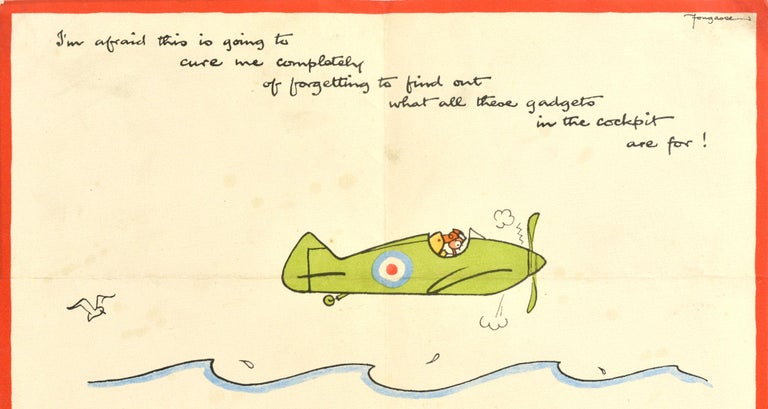 Fougasse
I'm afraid this is going to
cure me completely
of forgetting to find out
what all these gadgets
in the cockpit
are for!